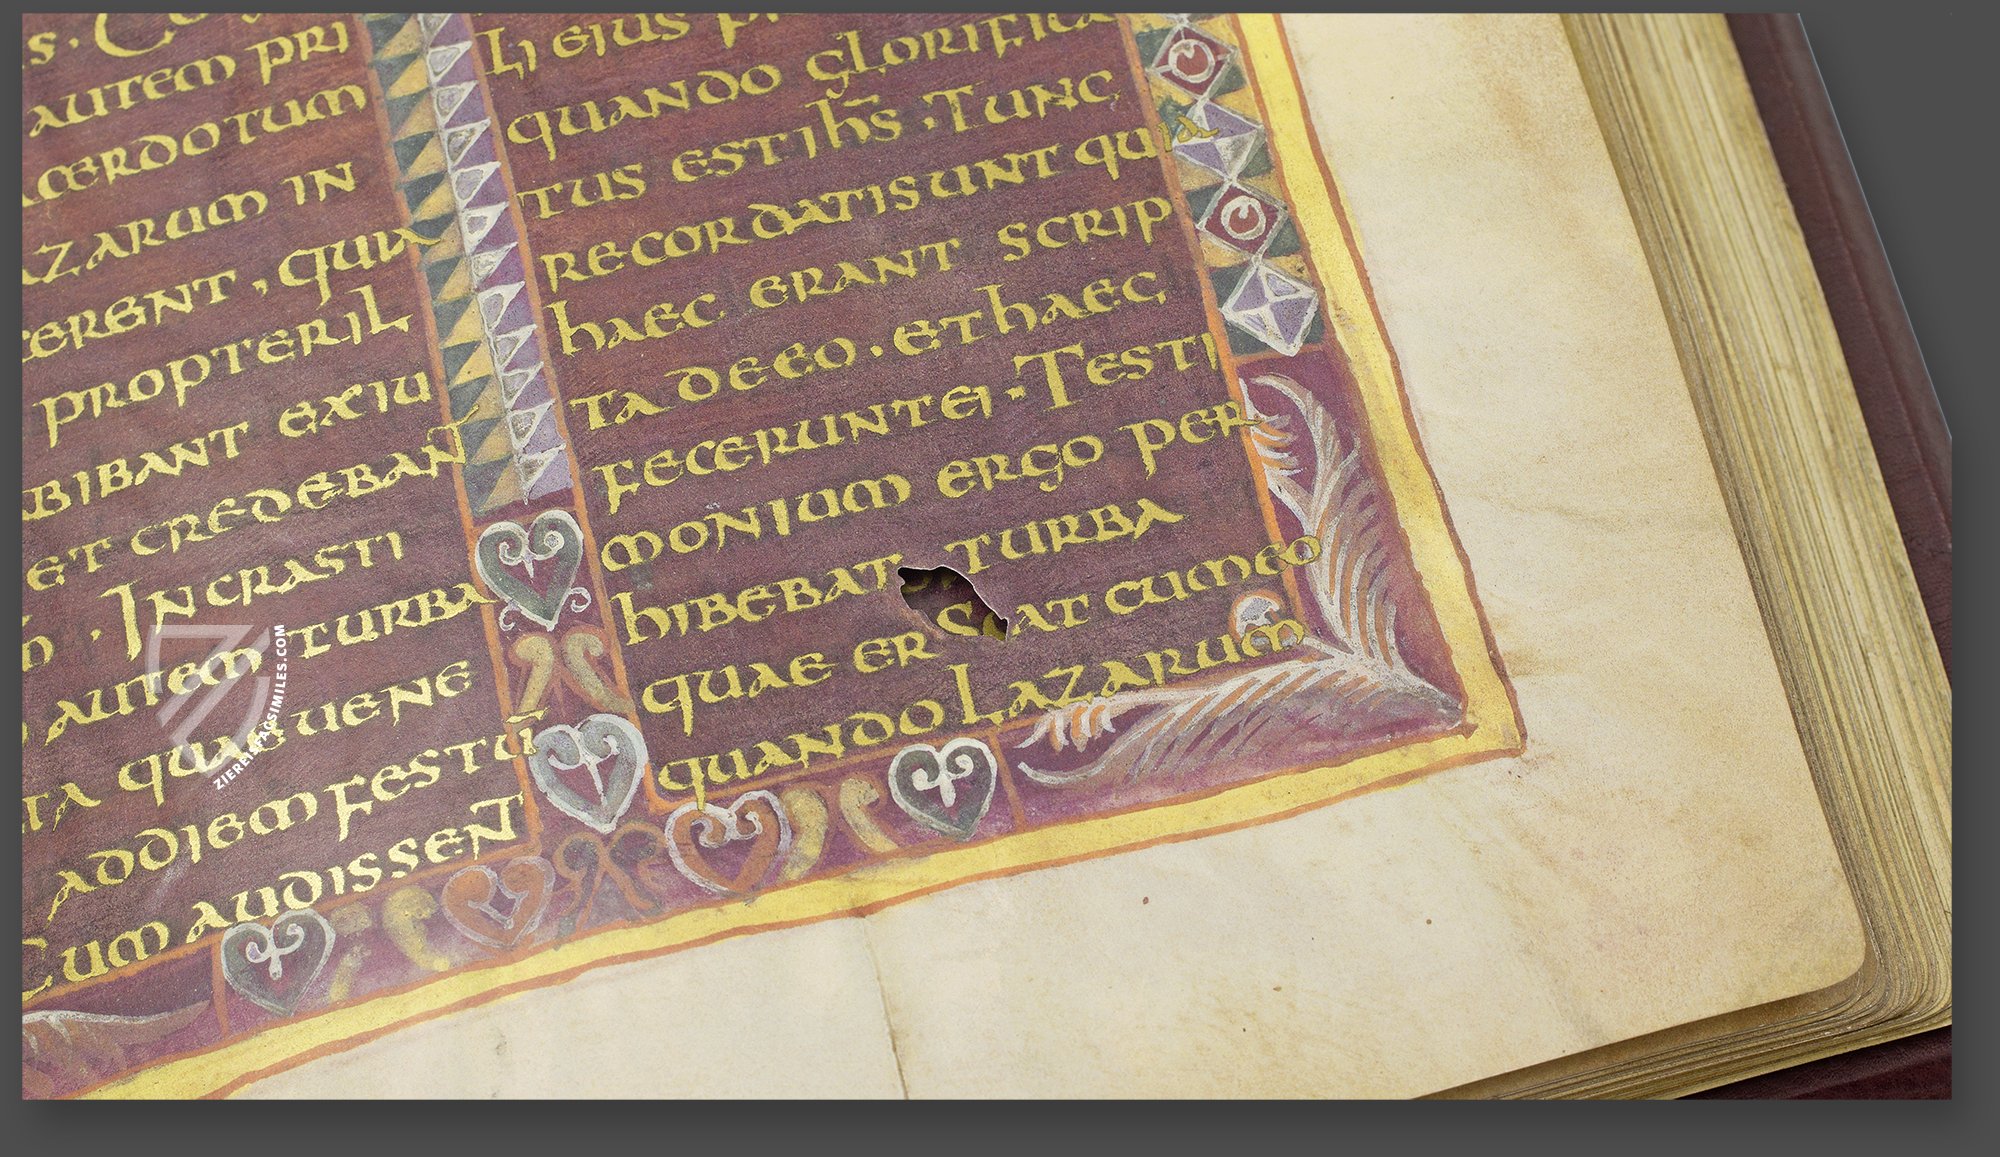 s.
autem pri
acerdotum
azarum in
rerent, quia
propter il
bibant exiu
et credebant
. In crasti
autem turba
ta quae uene
ad diem festū
Cum audissent
li eius
quando glorifica
tus est ihs̄ . Tunc
recordati sunt quia
haec erant scrip
ta de eo . et haec
fecerunt ei . Testi
monium ergo per
hibebat turba
quae erat cum eo
quando Lazarum
ZIEREIFACSIMILES.COM